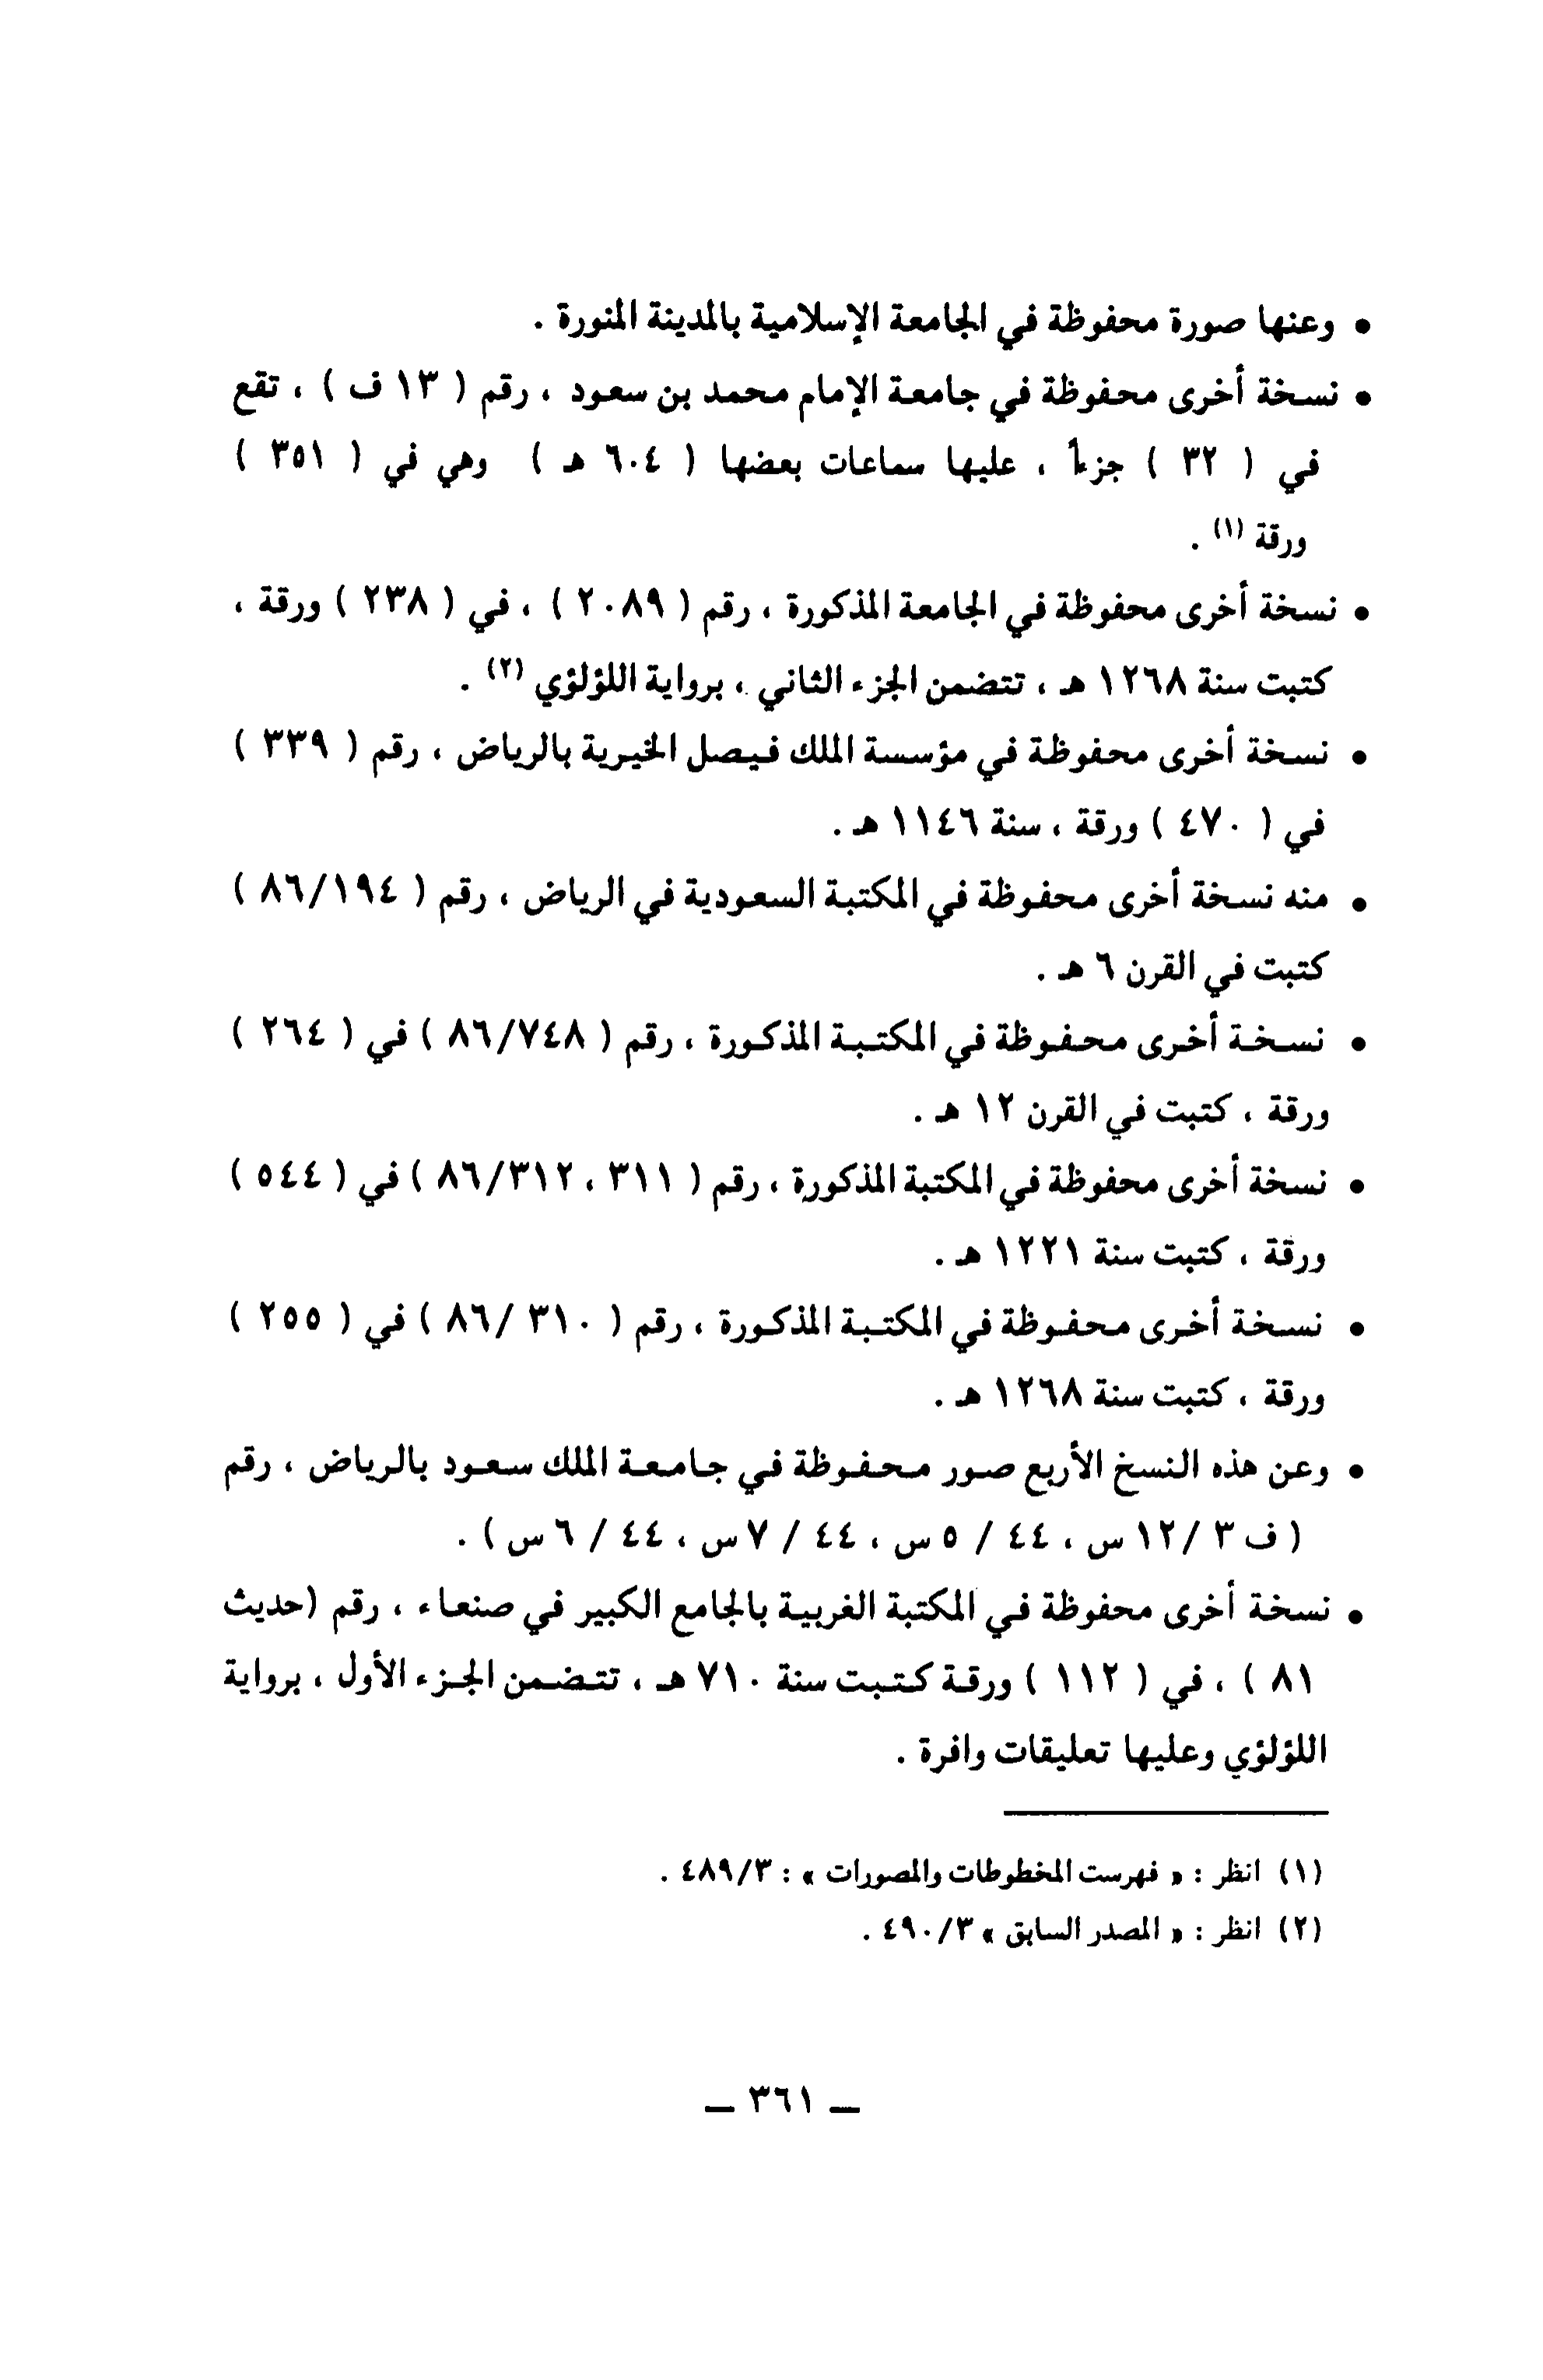 • وعنها صورة محفوظة في الجامعة الإسلامية بالمدينة المنورة .
• نسخة أخرى محفوظة في جامعة الإمام محمد بن سعود ، رقم ( ١٣ ف ) ، تقع
في ( ٣٢ ) جزءاً ، عليها سماعات بعضها ( ٦٠٤ هـ ) وهي في ( ٣٥١ )
ورقة (١) .
• نسخة أخرى محفوظة في الجامعة المذكورة ، رقم ( ٢٠٨٩ ) ، في ( ٢٣٨ ) ورقة ،
كتبت سنة ١٢٦٨ هـ ، تتضمن الجزء الثاني ، برواية اللؤلؤي (٢) .
• نسخة أخرى محفوظة في مؤسسة الملك فيصل الخيرية بالرياض ، رقم ( ٣٣٩ )
في ( ٤٧٠ ) ورقة ، سنة ١١٤٦ هـ .
• منه نسخة أخرى محفوظة في المكتبة السعودية في الرياض ، رقم ( ٨٦/١٩٤ )
كتبت في القرن ٦ هـ .
• نسخة أخرى محفوظة في المكتبة المذكورة ، رقم ( ٨٦/٧٤٨ ) في ( ٢٦٤ )
ورقة ، كتبت في القرن ١٢ هـ .
• نسخة أخرى محفوظة في المكتبة المذكورة ، رقم ( ٣١١ ، ٨٦/٣١٢ ) في ( ٥٤٤ )
ورقة ، كتبت سنة ١٢٢١ هـ .
• نسخة أخرى محفوظة في المكتبة المذكورة ، رقم ( ٣١٠ /٨٦ ) في ( ٢٥٥ )
ورقة ، كتبت سنة ١٢٦٨ هـ .
• وعن هذه النسخ الأربع صور محفوظة في جامعة الملك سعود بالرياض ، رقم
( ف ٣ /١٢ س ، ٤٤ / ٥ س ، ٤٤ / ٧ س ، ٤٤ / ٦ س ) .
• نسخة أخرى محفوظة في المكتبة الغربية بالجامع الكبير في صنعاء ، رقم (حديث
٨١ ) ، في ( ١١٢ ) ورقة كتبت سنة ٧١٠ هـ ، تتضمن الجزء الأول ، برواية
اللؤلؤي وعليها تعليقات وافرة .
(١) انظر : « فهرست المخطوطات والمصورات » : ٤٨٩/٣ .
(٢) انظر : « المصدر السابق » ٤٩٠/٣ .
— ٣٦١ —